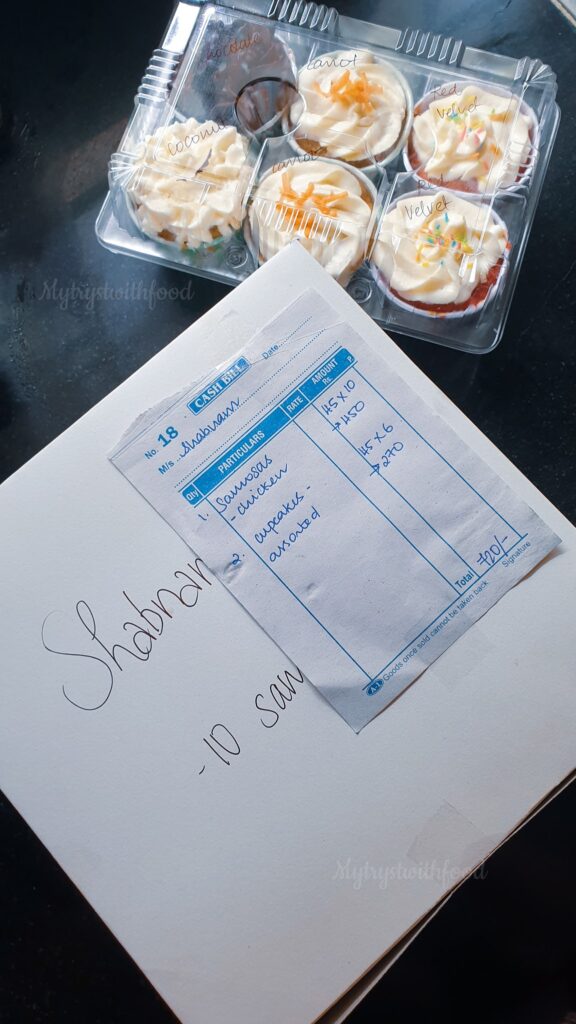 chocolate
carrot
Red
Velvet
coconut
carrot
Red
Velvet
Mytrystwithfood
CASH BILL
No. 18
Date
M/s. Shabnam
Qty PARTICULARS RATE AMOUNT
Rs P
1. Samosas 45 x 10
- chicken → 450
2. cupcakes - 45 x 6
assorted → 270
Total 720/-
A-1 Goods once sold cannot be taken back Signature
Shabnam
- 10 sam
Mytrystwithfood